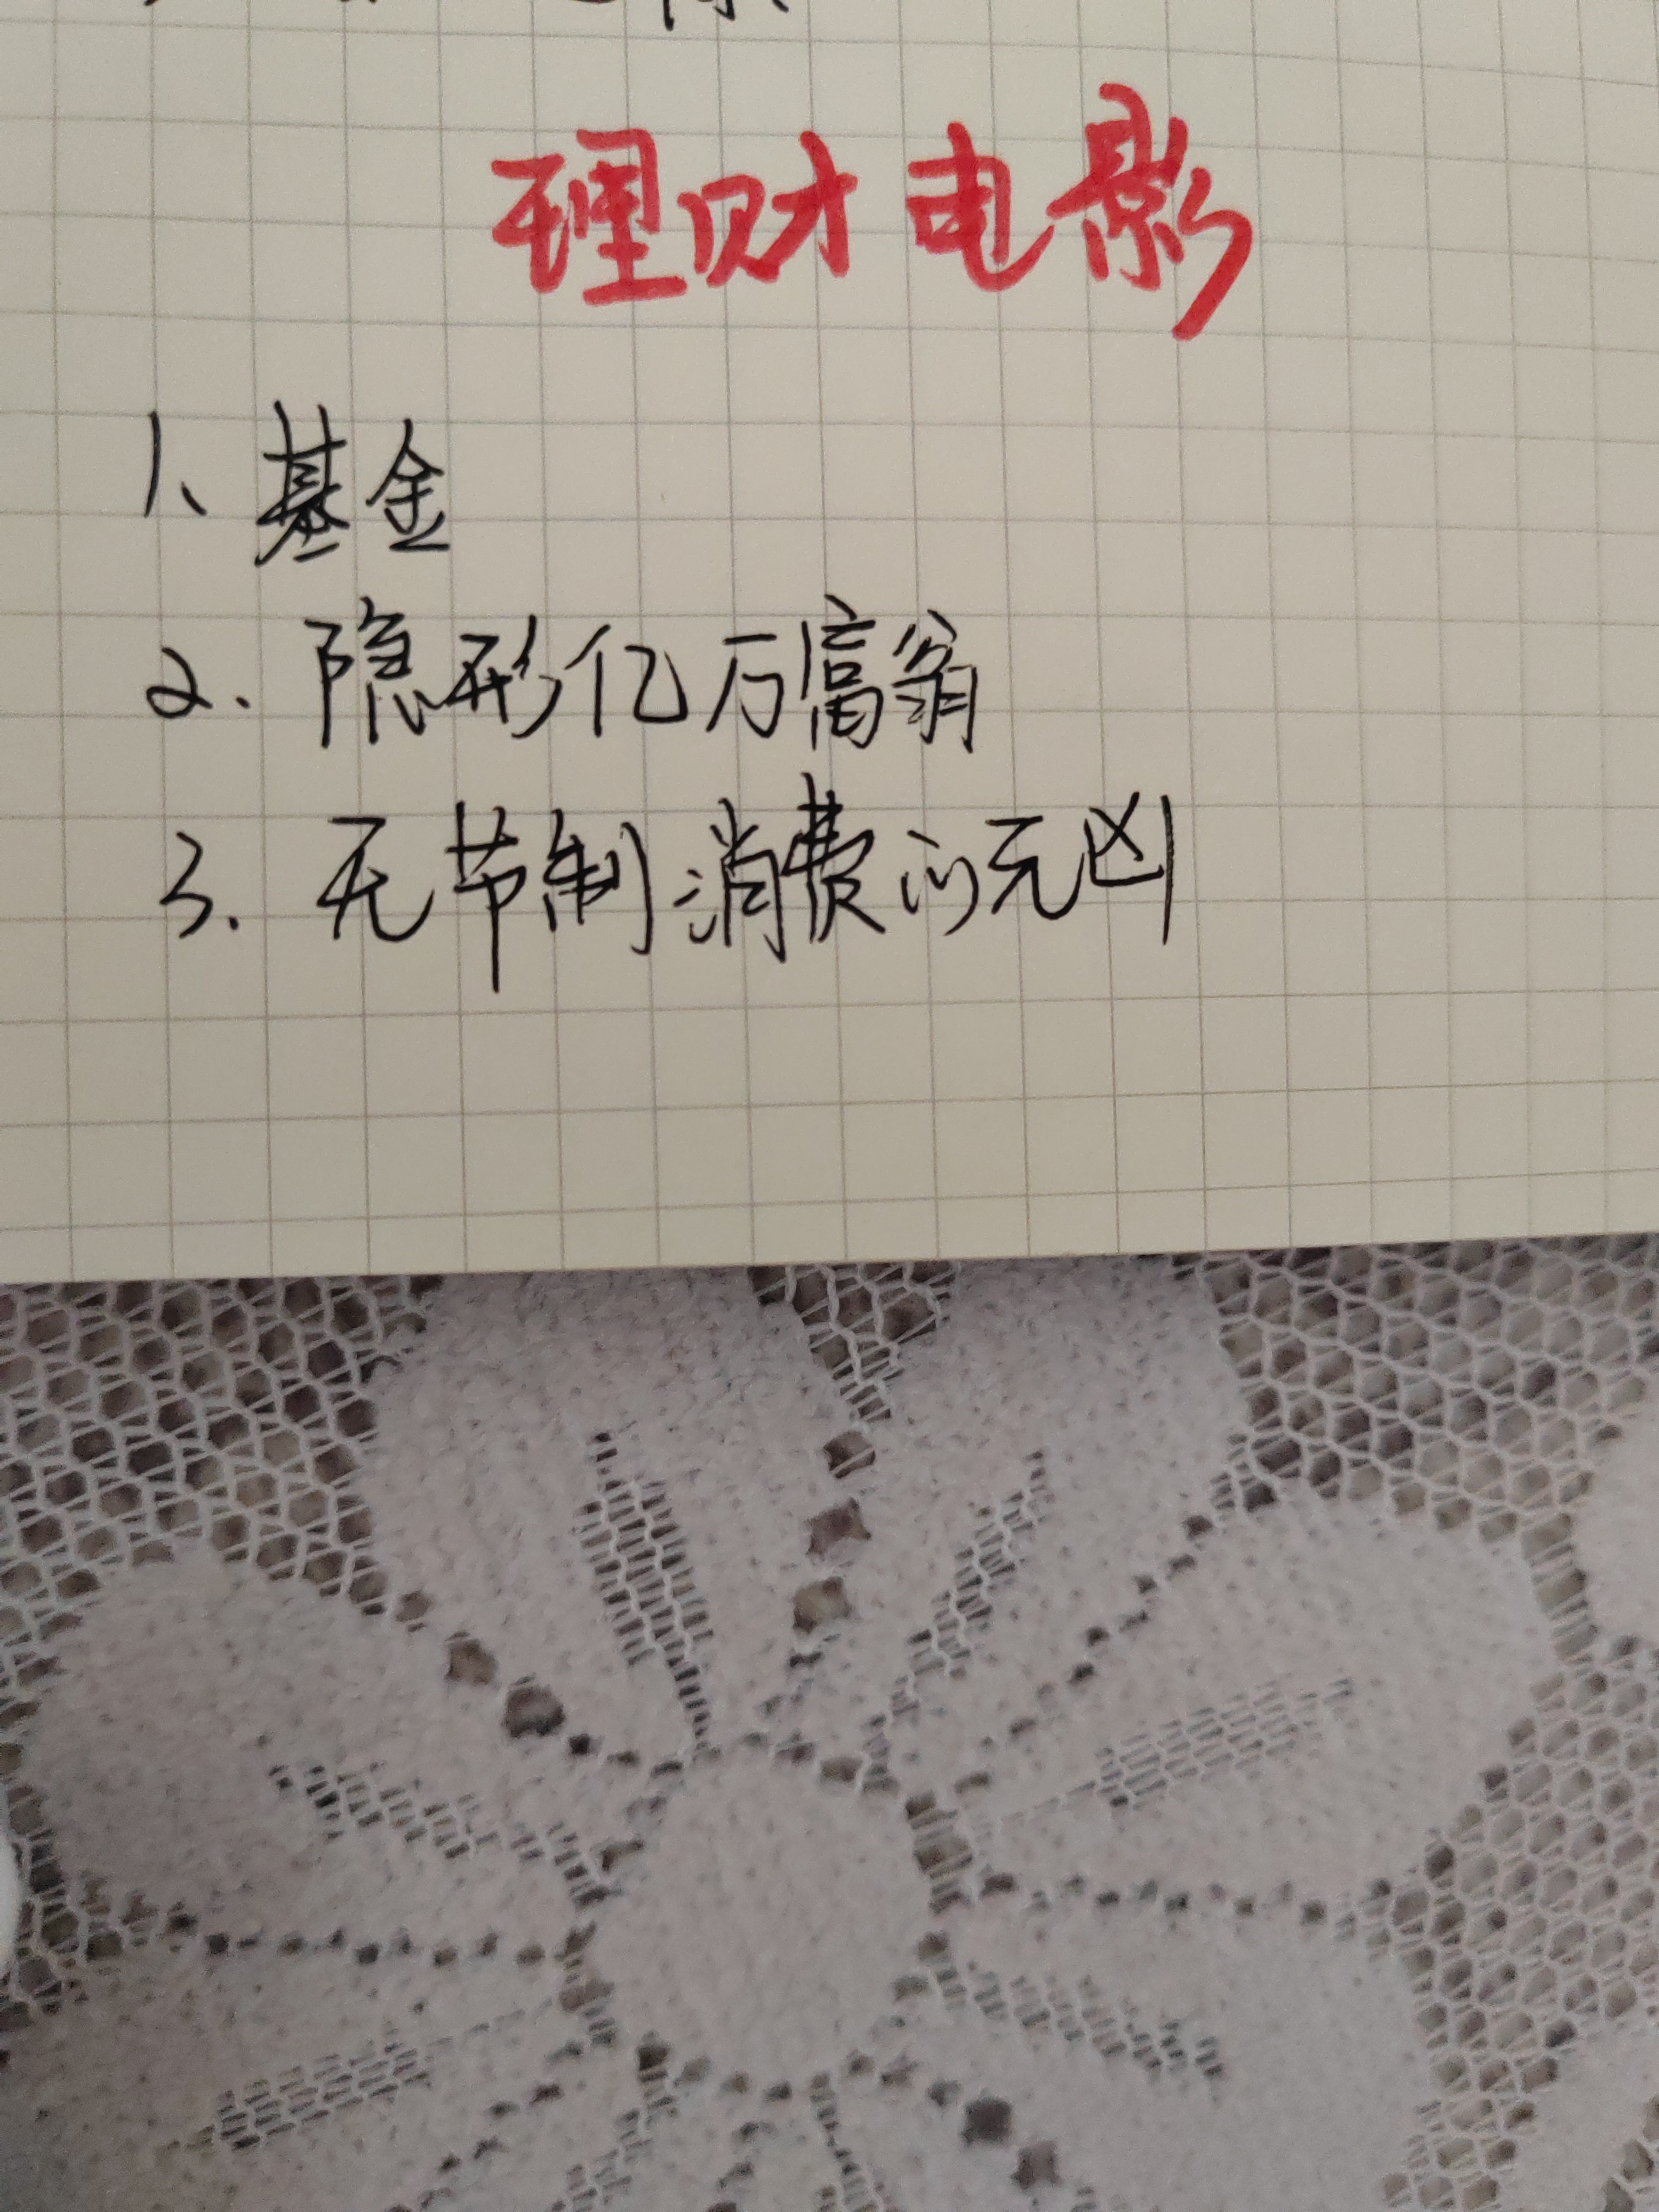 理财电影
1、基金
2. 隐形亿万富翁
3. 无节制消费的元凶